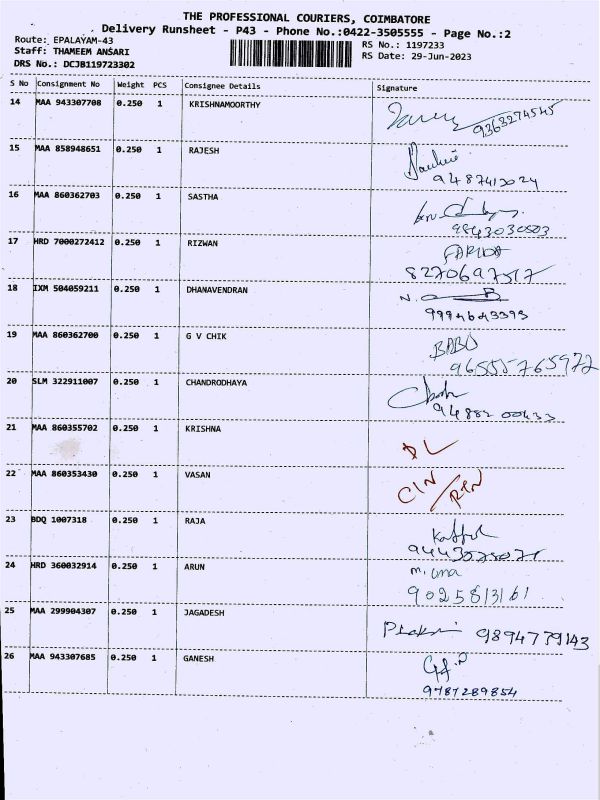 THE PROFESSIONAL COURIERS, COIMBATORE
Delivery Runsheet - P43 - Phone No.:0422-3505555 - Page No.:2
Route: EPALAYAM-43
Staff: THAMEEM ANSARI
DRS No.: DCJB119723302
RS No.: 1197233
RS Date: 29-Jun-2023
S No Consignment No Weight PCS Consignee Details Signature
14 MAA 943307708 0.250 1 KRISHNAMOORTHY
9363274545
15 MAA 858948651 0.250 1 RAJESH
9487412024
16 MAA 860362703 0.250 1 SASTHA
9843030503
17 HRD 7000272412 0.250 1 RIZWAN FARIDA
8270697517
18 IXM 504059211 0.250 1 DHANAVENDRAN
9994643393
19 MAA 860362700 0.250 1 G V CHIK BABU
965555765972
20 SLM 322911007 0.250 1 CHANDRODHAYA
94882 00433
21 MAA 860355702 0.250 1 KRISHNA DL
22 MAA 860353430 0.250 1 VASAN CIN/RTN
23 BDQ 1007318 0.250 1 RAJA
24 HRD 360032914 0.250 1 ARUN M. Uma
9025813161
25 MAA 299904307 0.250 1 JAGADESH 9894779143
26 MAA 943307685 0.250 1 GANESH
9787289854